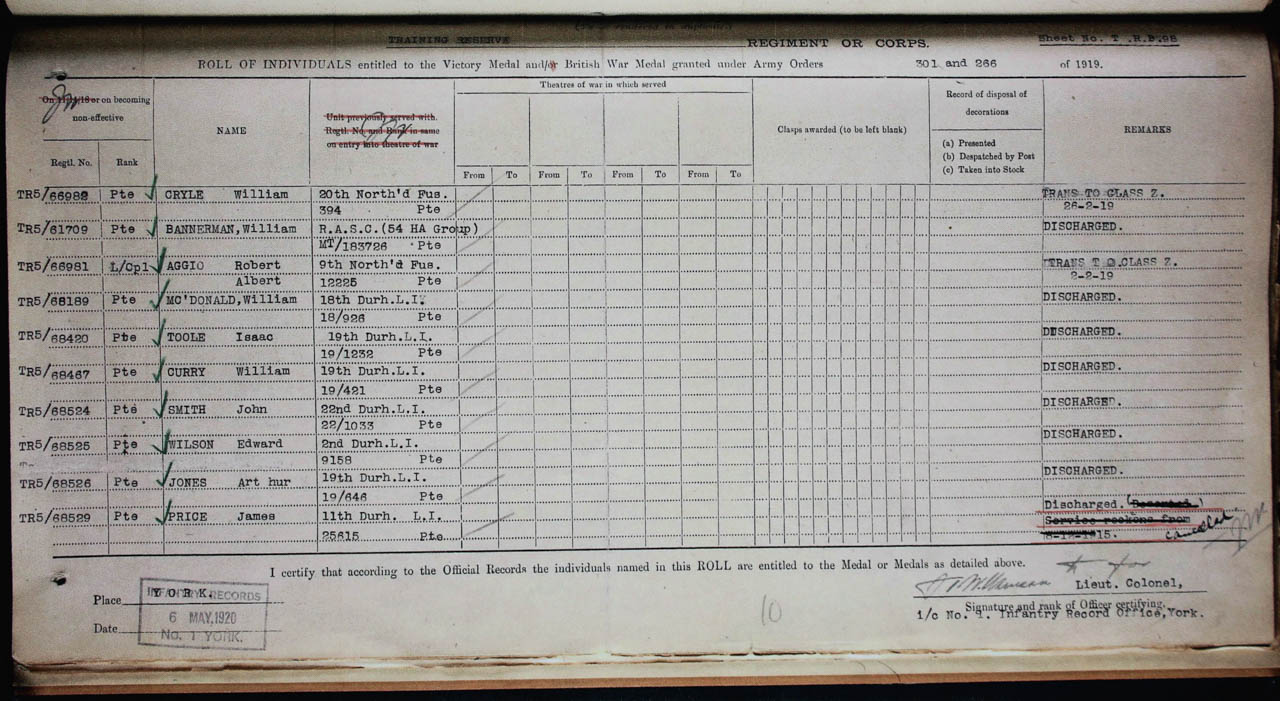 TRAINING RESERVE
REGIMENT OR CORPS.
Sheet No. T .R.B.98
ROLL OF INDIVIDUALS entitled to the Victory Medal and/or British War Medal granted under Army Orders 301 and 266 of 1919.
On 11/11/18 or on becoming non-effective
NAME
Unit previously served with. Regtl. No. and Rank in same on entry into theatre of war
Theatres of war in which served
Clasps awarded (to be left blank)
Record of disposal of decorations
(a) Presented
(b) Despatched by Post
(c) Taken into Stock
REMARKS
Regtl. No. Rank
From To From To From To From To
TR5/66982 Pte CRYLE William 20th North'd Fus. TRANS TO CLASS Z.
394 Pte 26-2-19
TR5/61709 Pte BANNERMAN,William R.A.S.C.(54 HA Group) DISCHARGED.
MT/183726 Pte
TR5/66981 L/Cpl AGGIO Robert 9th North'd Fus. TRANS T O.CLASS Z.
Albert 12225 Pte 2-2-19
TR5/68189 Pte MC'DONALD,William 18th Durh.L.I. DISCHARGED.
18/926 Pte
TR5/68420 Pte TOOLE Isaac 19th Durh.L.I. DISCHARGED.
19/1232 Pte
TR5/68467 Pte CURRY William 19th Durh.L.I. DISCHARGED.
19/421 Pte
TR5/68524 Pte SMITH John 22nd Durh.L.I. DISCHARGED.
22/1033 Pte
TR5/68525 Pte WILSON Edward 2nd Durh.L.I. DISCHARGED.
9158 Pte
TR5/68526 Pte JONES Art hur 19th Durh.L.I. DISCHARGED.
19/646 Pte
TR5/68529 Pte PRICE James 11th Durh. L.I. Discharged.
25615 Pte. Service reckons from
15. cancelled
I certify that according to the Official Records the individuals named in this ROLL are entitled to the Medal or Medals as detailed above.
for
Lieut. Colonel,
Signature and rank of Officer certifying.
i/c No. 1. Infantry Record Office,York.
Place YORK.
Date
INFANTRY RECORDS
6 MAY.1920
No. 1 YORK.
10